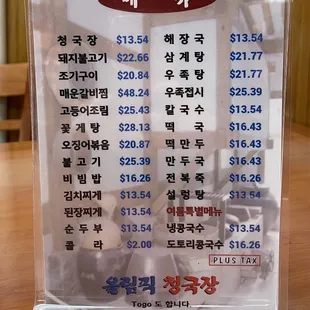 메 뉴
청 국 장 $13.54
돼지불고기 $22.66
조기구이 $20.84
매운갈비찜 $48.24
고등어조림 $25.43
꽃 게 탕 $28.13
오징어볶음 $20.87
불 고 기 $25.39
비 빔 밥 $16.26
김치찌게 $13.54
된장찌게 $13.54
순 두 부 $13.54
콜 라 $2.00
해 장 국 $13.54
삼 계 탕 $21.77
우 족 탕 $21.77
우족접시 $25.39
칼 국 수 $13.54
떡 국 $16.43
떡 만 두 $16.43
만 두 국 $16.43
전 복 죽 $16.26
설 렁 탕 $13.54
여름특별메뉴
냉콩국수 $13.54
도토리콩국수 $16.26
PLUS TAX
올림픽 청국장
Togo 도 합니다.